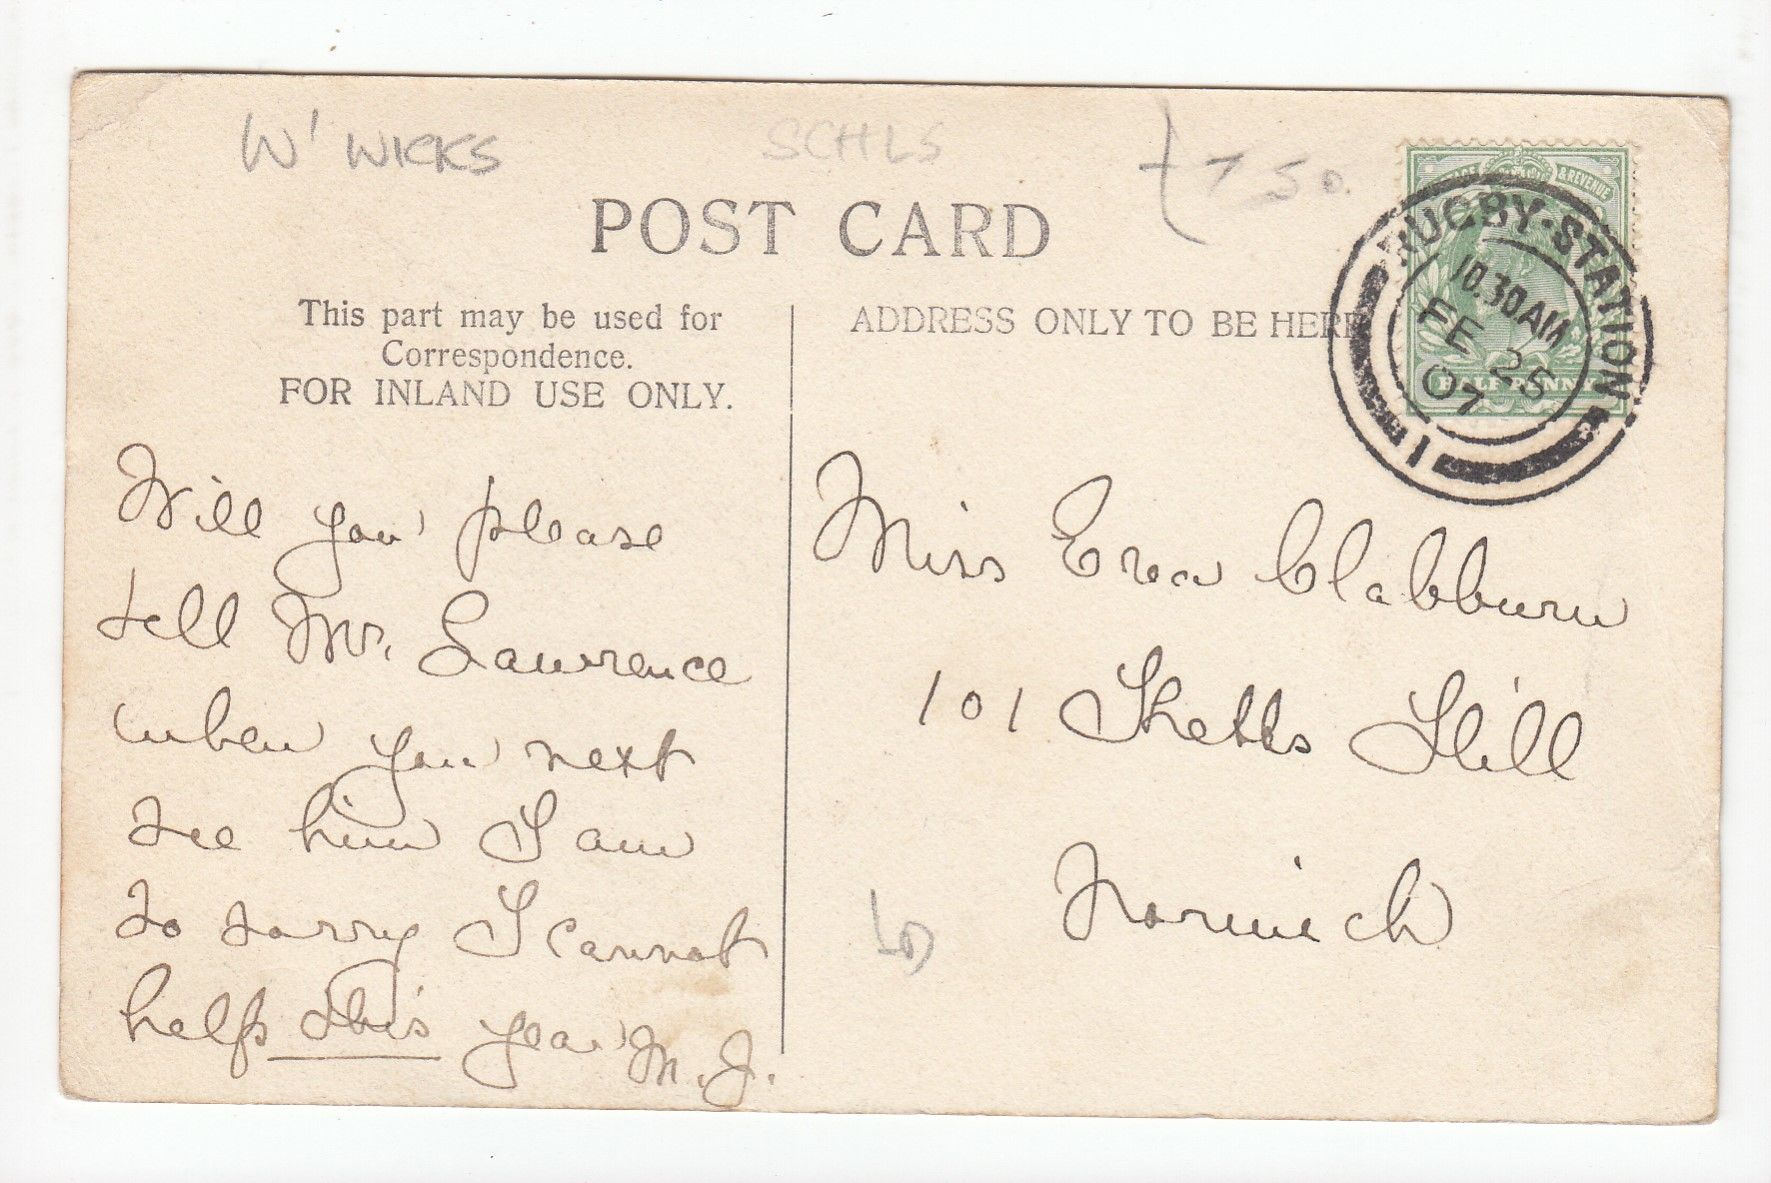 W' WICKS
SCHLS
POST CARD
This part may be used for
Correspondence.
FOR INLAND USE ONLY.
ADDRESS ONLY TO BE HERE
& REVENUE
HALFPENNY
RUGBY·STATION
10.30AM
FE 25
07
1
Will you please
tell Mr. Lawrence
when you next
see him I am
so sorry I cannot
help this year M.J.
Miss Eva Clabburn
101 Ketts Hill
Norwich